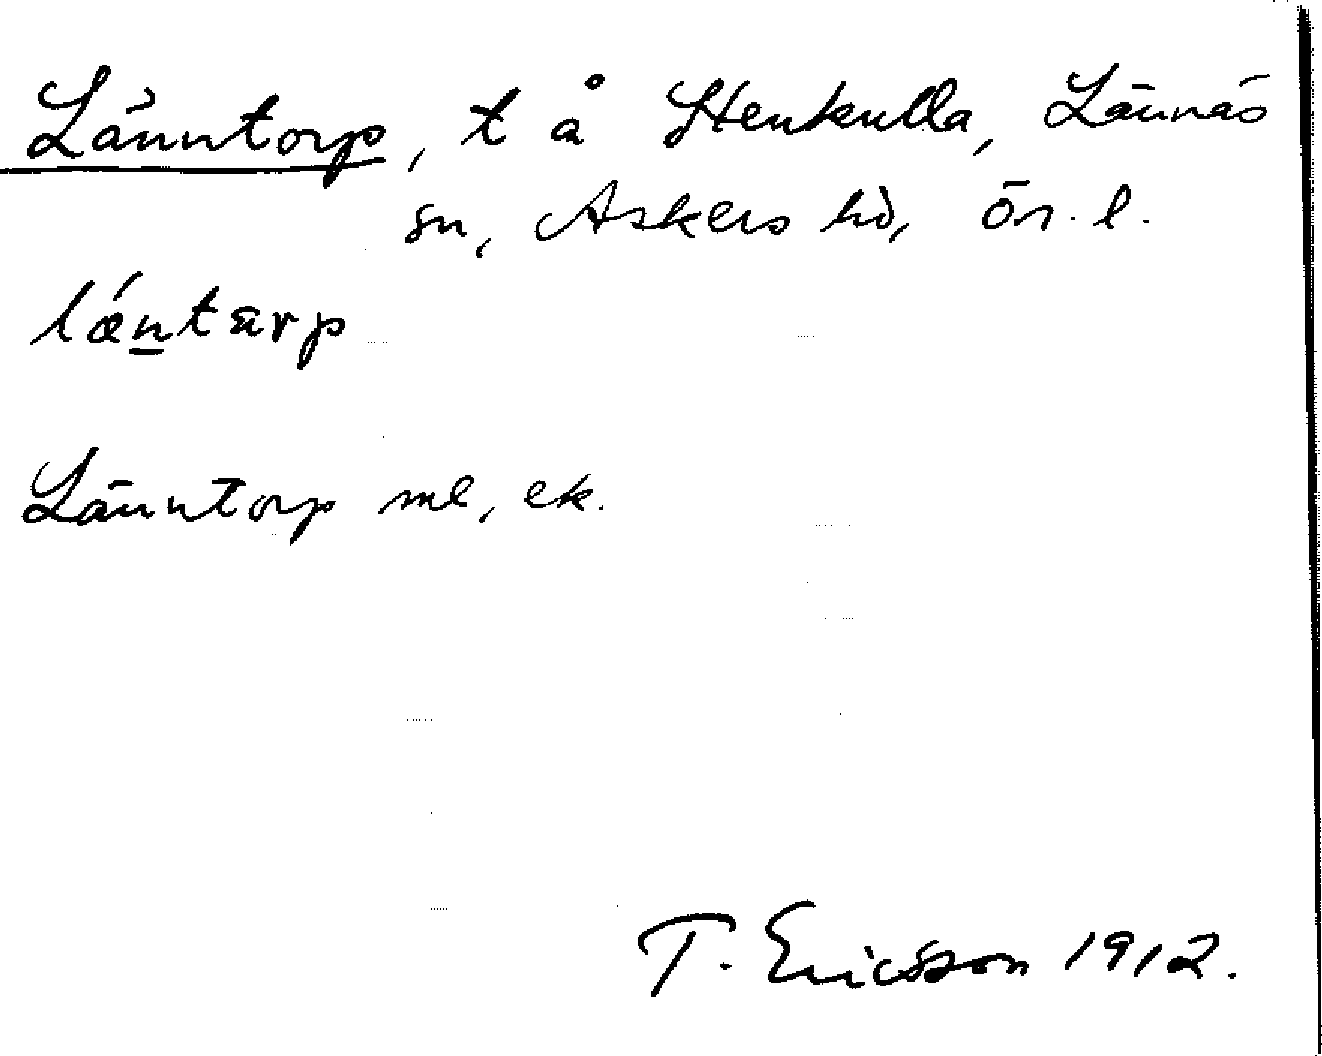 Länntorp, t å Stenkulla, Lännäs
sn, Askers hd, Ör. l.
lǽntarp
Länntorp ml, ek.
T. Ericsson 1912.